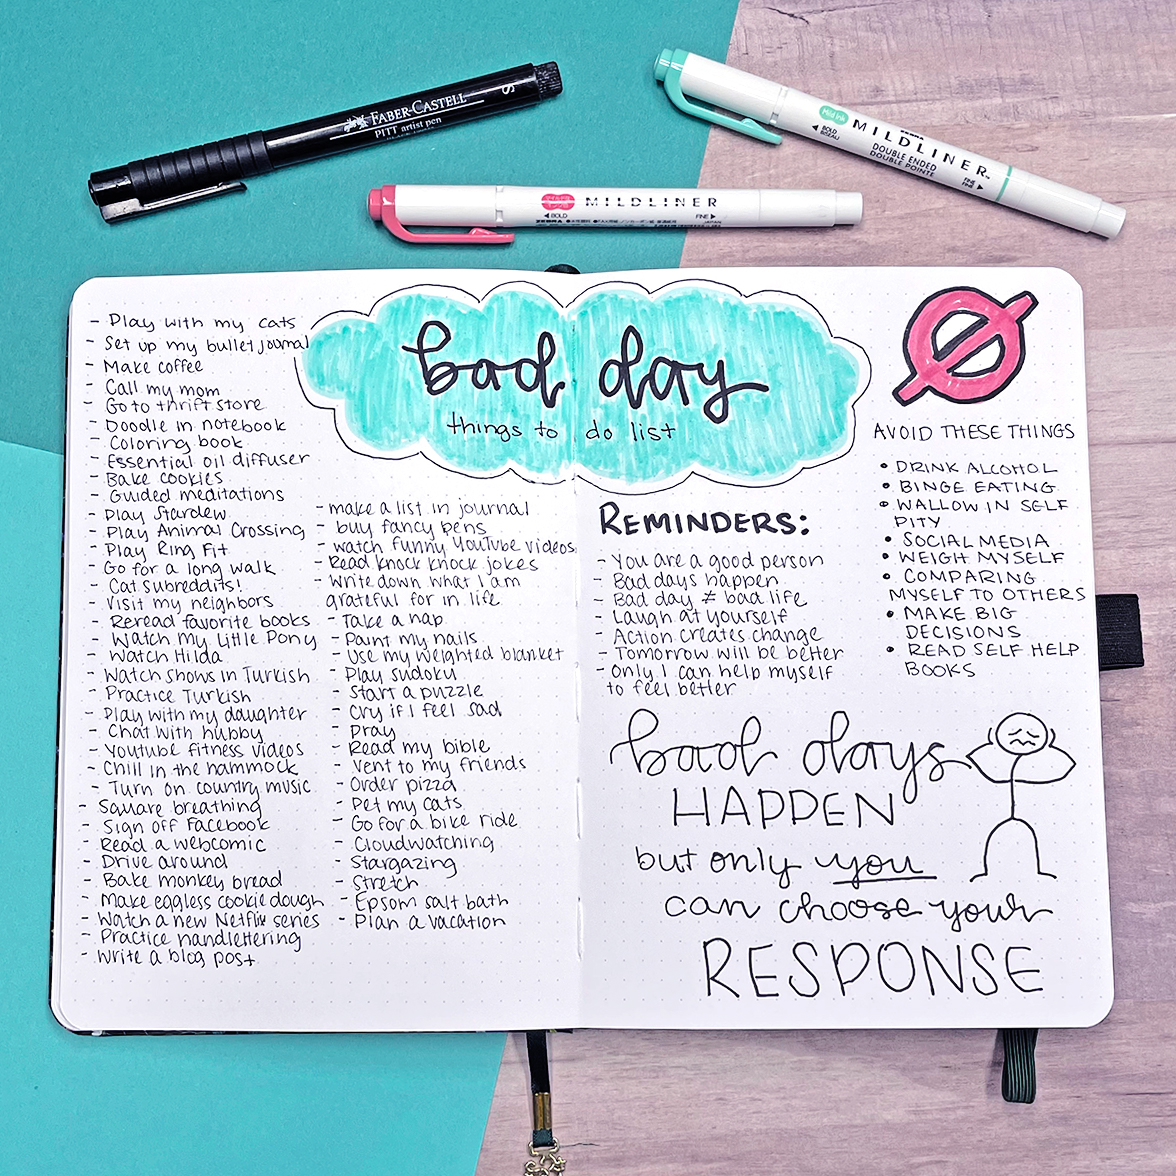 FABER-CASTELL
PITT artist pen
S
Mild ink
ZEBRA
MILDLINER™
BOLD
BISEAU
DOUBLE ENDED
DOUBLE POINTE
FINE
FIN
MILDLINER
BOLD
FINE
ZEBRA
JAPAN
bad day
things to do list
- Play with my cats
- Set up my bullet journal
- Make coffee
- Call my mom
- Go to thrift store
- Doodle in notebook
- Coloring book
- Essential oil diffuser
- Bake cookies
- Guided meditations
- Play Stardew
- Play Animal Crossing
- Play Ring Fit
- Go for a long walk
- Cat subreddits!
- Visit my neighbors
- Reread favorite books
- Watch My Little Pony
- Watch Hilda
- Watch shows in Turkish
- Practice Turkish
- Play with my daughter
- Chat with hubby
- Youtube fitness videos
- Chill in the hammock
- Turn on country music
- Square breathing
- Sign off Facebook
- Read a webcomic
- Drive around
- Bake monkey bread
- Make eggless cookie dough
- Watch a new Netflix series
- Practice handlettering
- Write a blog post
- make a list in journal
- buy fancy pens
- watch funny YouTube videos
- Read knock knock jokes
- Write down what I am
grateful for in life
- Take a nap
- Paint my nails
- Use my weighted blanket
- Play sudoku
- Start a puzzle
- Cry if I feel sad
- Pray
- Read my bible
- Vent to my friends
- Order pizza
- Pet my cats
- Go for a bike ride
- Cloudwatching
- Stargazing
- Stretch
- Epsom salt bath
- Plan a vacation
REMINDERS:
- You are a good person
- Bad days happen
- Bad day ≠ bad life
- Laugh at yourself
- Action creates change
- Tomorrow will be better
- Only I can help myself
to feel better
AVOID THESE THINGS
• DRINK ALCOHOL
• BINGE EATING
• WALLOW IN SELF
PITY
• SOCIAL MEDIA
• WEIGH MYSELF
• COMPARING
MYSELF TO OTHERS
• MAKE BIG
DECISIONS
• READ SELF HELP
BOOKS
bad days
HAPPEN
but only you
can choose your
RESPONSE